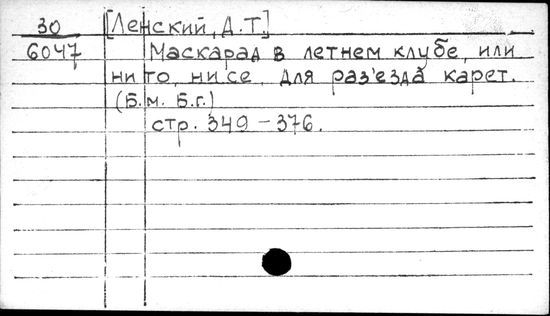 30 [Ленский, Д.Т.]
6047 Маскарад в летнем клубе, или
ни то, ни се для раз'езда карет.
(Б.м. Б.г.)
стр. 349-376.